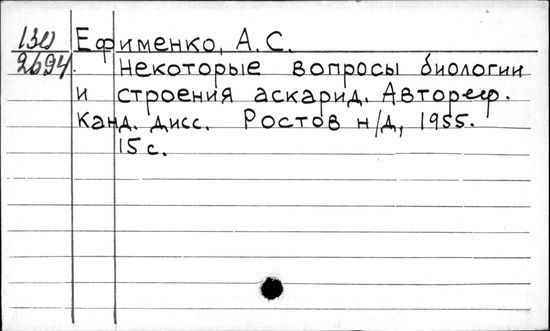 Ефименко, А.С.
2694. Некоторые вопросы биологии
и строения аскарид. Автореф.
Канд. дисс. Ростов н/Д, 1955.
15 с.